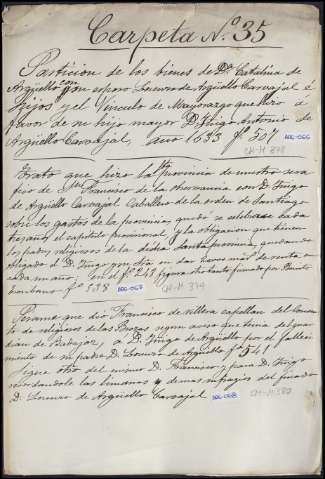 Carpeta Nº 35
Particion de los bienes de Dª Catalina de
Argüello con su esposo Lorenzo de Argüello Carvajal é
hijos y el Vinculo de Mayorazgo que hizo á
favor de su hijo mayor D. Iñigo Antonio de
Argüello Carvajal, año 1633 fº 507
ACC-066
CH-M 378
Trato que hizo la provincia de nuestro sera
fico de San Francisco de la observancia con D. Iñigo
de Argüello Carvajal Caballero de la orden de Santiago
sobre los gastos de la provincia, cuando se celebrase cada
tres años el capitulo provincial, y la obligacion que tienen
los padres religiosos de la dicha Santa provincia, quedando
obligado á D. Iñigo y en dar mil de renta en
cada un año. en el fº 243 figura otro tanto firmado por
fº 538 ACC-067 CH-M 379
Pesame que dió Francisco de Villera capellan del Conven
to de religiosas de las Brozas segun aviso que tenia del guar
dian de Badajoz, á D. Iñigo de Argüello por el falleci
miento de su padre D. Lorenzo de Argüello fº 541
Sigue otro del mismo D. Francisco y para D. Iñigo
recordandole las limosnas y demas sufragios del finado
D. Lorenzo de Argüello Carvajal ACC-068 CH-M 380